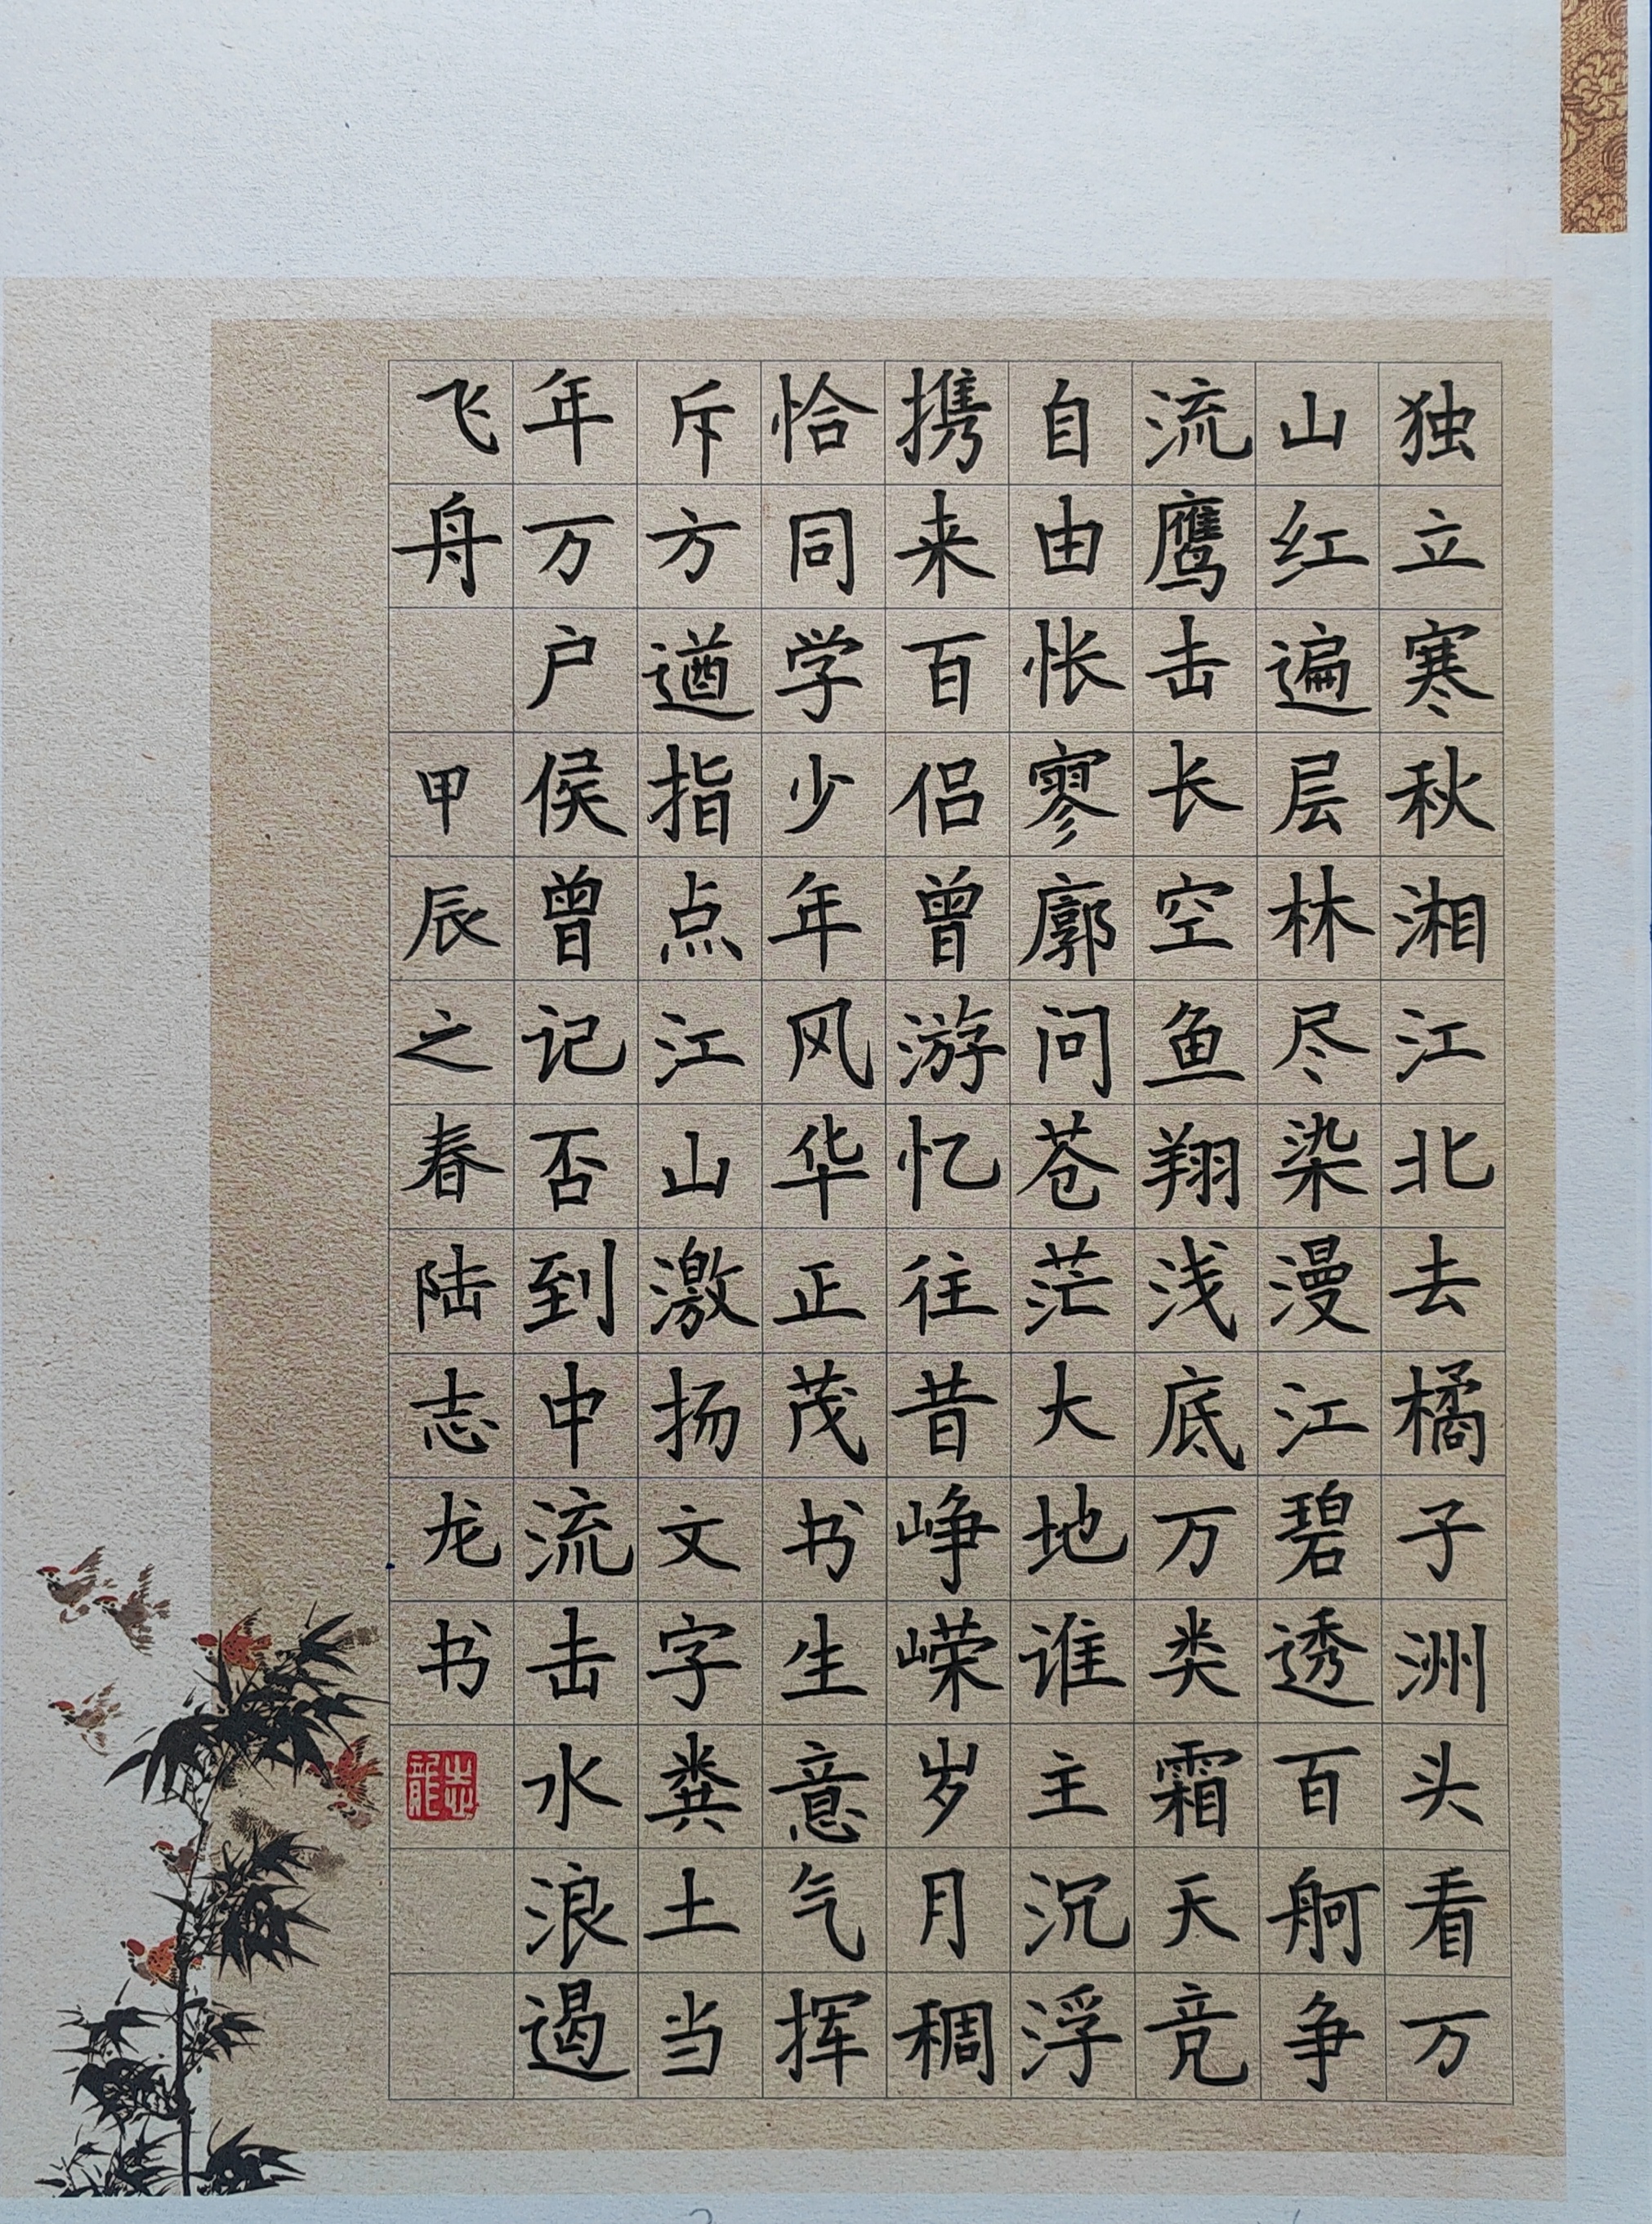 独立寒秋湘江北去橘子洲头看万
山红遍层林尽染漫江碧透百舸争
流鹰击长空鱼翔浅底万类霜天竞
自由怅寥廓问苍茫大地谁主沉浮
携来百侣曾游忆往昔峥嵘岁月稠
恰同学少年风华正茂书生意气挥
斥方遒指点江山激扬文字粪土当
年万户侯曾记否到中流击水浪遏
飞舟 甲辰之春陆志龙书
志龍